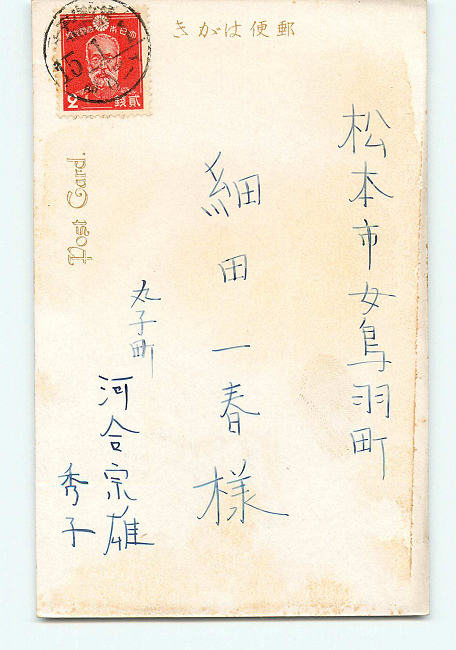 きがは便郵
松本市女鳥羽町
細田一春様
丸子町
河合宗雄
秀子
Post Card.
大日本
2
銭貳
15